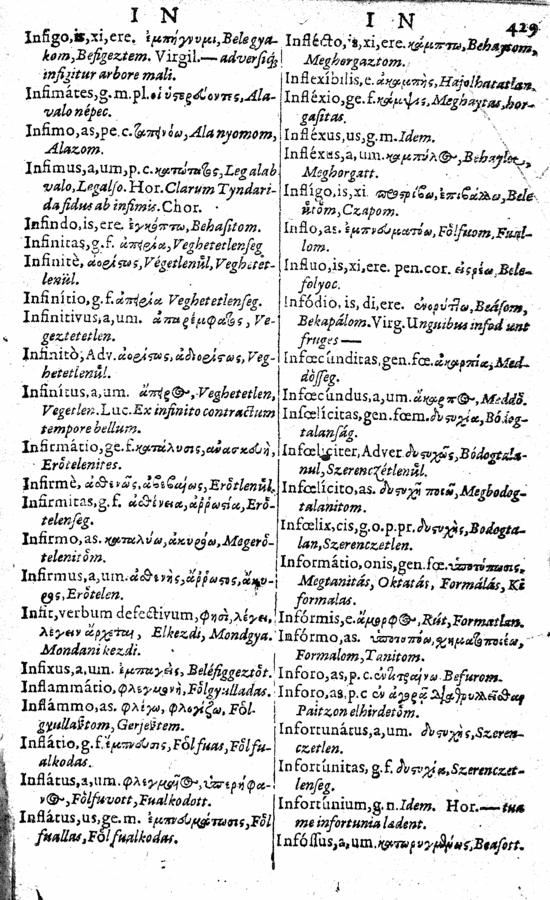 I N
I N
429
Infigo, is, xi, ere. ἐμπήγνυμι, Belegya-
kom, Befigeztem. Virgil. — adversiq;
infigitur arbore mali.
Infimátes, g. m. pl. οἱ ὑστερεύοντες, Ala-
valo népec.
Infimo, as, pe. c. ταπεινόω, Alanyomom,
Alazom.
Infimus, a, um, p. c. κατώτατος, Leg alab
valo, Legalso. Hor. Clarum Tyndari-
da sidus ab infimis. Chor.
Infindo, is, ere. ἐγκόπτω, Behasitom.
Infinitas, g. f. ἀπειρία, Veghetetlenseg
Infinitè, ἀορίστως, Végetlenűl, Veghetet-
lenűl.
Infinítio, g. f. ἀπειρία Veghetetlenseg.
Infinitivus, a, um. ἀπαρέμφατος, Ve-
geztetetlen.
Infinitò, Adv. ἀορίστως, ἀδιορίστως, Veg-
hetetlenűl.
Infinítus, a, um. ἄπειρος, Veghetetlen,
Vegetlen. Luc. Ex infinito contractum
tempore bellum.
Infirmátio, ge. f. κατάλυσις, ἀνασκευὴ,
Erőtelenites.
Infirmè, ἀσθενῶς, ἀβεβαίως, Erőtlenűl.
Infirmitas, g. f. ἀσθένεια, ἀῤῥωσία, Erő-
telenseg.
Infirmo, as. καταλύω, ἀκυρόω, Megerő-
telenitőm.
Infirmus, a, um. ἀσθενὴς, ἄῤῥωστος, ἄκυ-
ρος, Erőtelen.
Infit, verbum defectivum, φησὶ, λέγει,
λέγειν ἄρχεται, Elkezdi, Mondgya.
Mondani kezdi.
Infixus, a, um. ἐμπαγεὶς, Beléfiggeztőt.
Inflammátio, φλεγμονὴ, Főlgyulladas.
Inflámmo, as. φλέγω, φλογίζω, Fől-
gyullastom, Gerjestem.
Inflátio, g. f. ἔμπνευσις, Fől fuas, Fől fu-
alkodas.
Inflátus, a, um. φλεγμῆνος, ὑπερήφα-
νος, Főlfuvott, Fualkodott.
Inflátus, us, ge. m. ἐμπνευμάτωσις, Fől
fuallas, Fől fualkodas.
Inflécto, is, xi, ere. κάμπτω, Behaytom,
Meghorgaztom.
Inflexíbilis, e. ἀκαμπὴς, Hajolhatatlan.
Infléxio, ge. f. κάμψις, Meghaytas, hor-
gasitas.
Infléxus, us, g. m. Idem.
Infléxus, a, um. καμπύλος, Behaytot,
Meghorgatt.
Inflígo, is, xi προστρίβω, ἐπιβάλλω, Bele
űtőm, Czapom.
Inflo, as. ἐμπνευματόω, Főlfuom, Fual-
lom.
Influo, is, xi, ere. pen. cor. εἰσρέω, Bele-
folyoc.
Infódio, is, di, ere. ἐνορύττω, Beásom,
Bekapálom. Virg. Unguibus infod unt
fruges —
Infœcúnditas, gen. fœ. ἀκαρπία, Med-
dősseg.
Infœcúndus, a, um. ἄκαρπος, Meddő.
Infœlícitas, gen. fœm. δυστυχία, Bódog-
talanság.
Infœlíciter, Adver. δυστυχῶς, Bódogtala-
nul, Szerenczétlenűl.
Infœlícito, as. δυστυχῆ ποιῶ, Megbodog-
talanitom.
Infœlix, cis, g. o, p. pr. δυστυχὴς, Bodogta-
lan, Szerenczetlen.
Informátio, onis, gen. fœ. ὑποτύπωσις,
Megtanitás, Oktatás, Formálás, Ki
formalas.
Infórmis, e. ἄμορφος, Rút, Formatlan.
Infórmo, as. ὑποτυπόω, σχηματοποιέω,
Formalom, Tanitom.
Inforo, as, p. c. ἐντετραίνω Befurom.
Inforo, as, p. c ἐν ἀγορᾷ διαθρυλλεῖσθαι
Paitzon elhirdetőm.
Infortunátus, a, um. δυστυχὴς, Szeren-
czetlen.
Infortúnitas, g. f. δυστυχία, Szerenczet-
lenseg.
Infortúnium, g. n. Idem. Hor. — tua
me infortunia ladent.
Infóssus, a, um. κατωρυγμένος, Beasott.